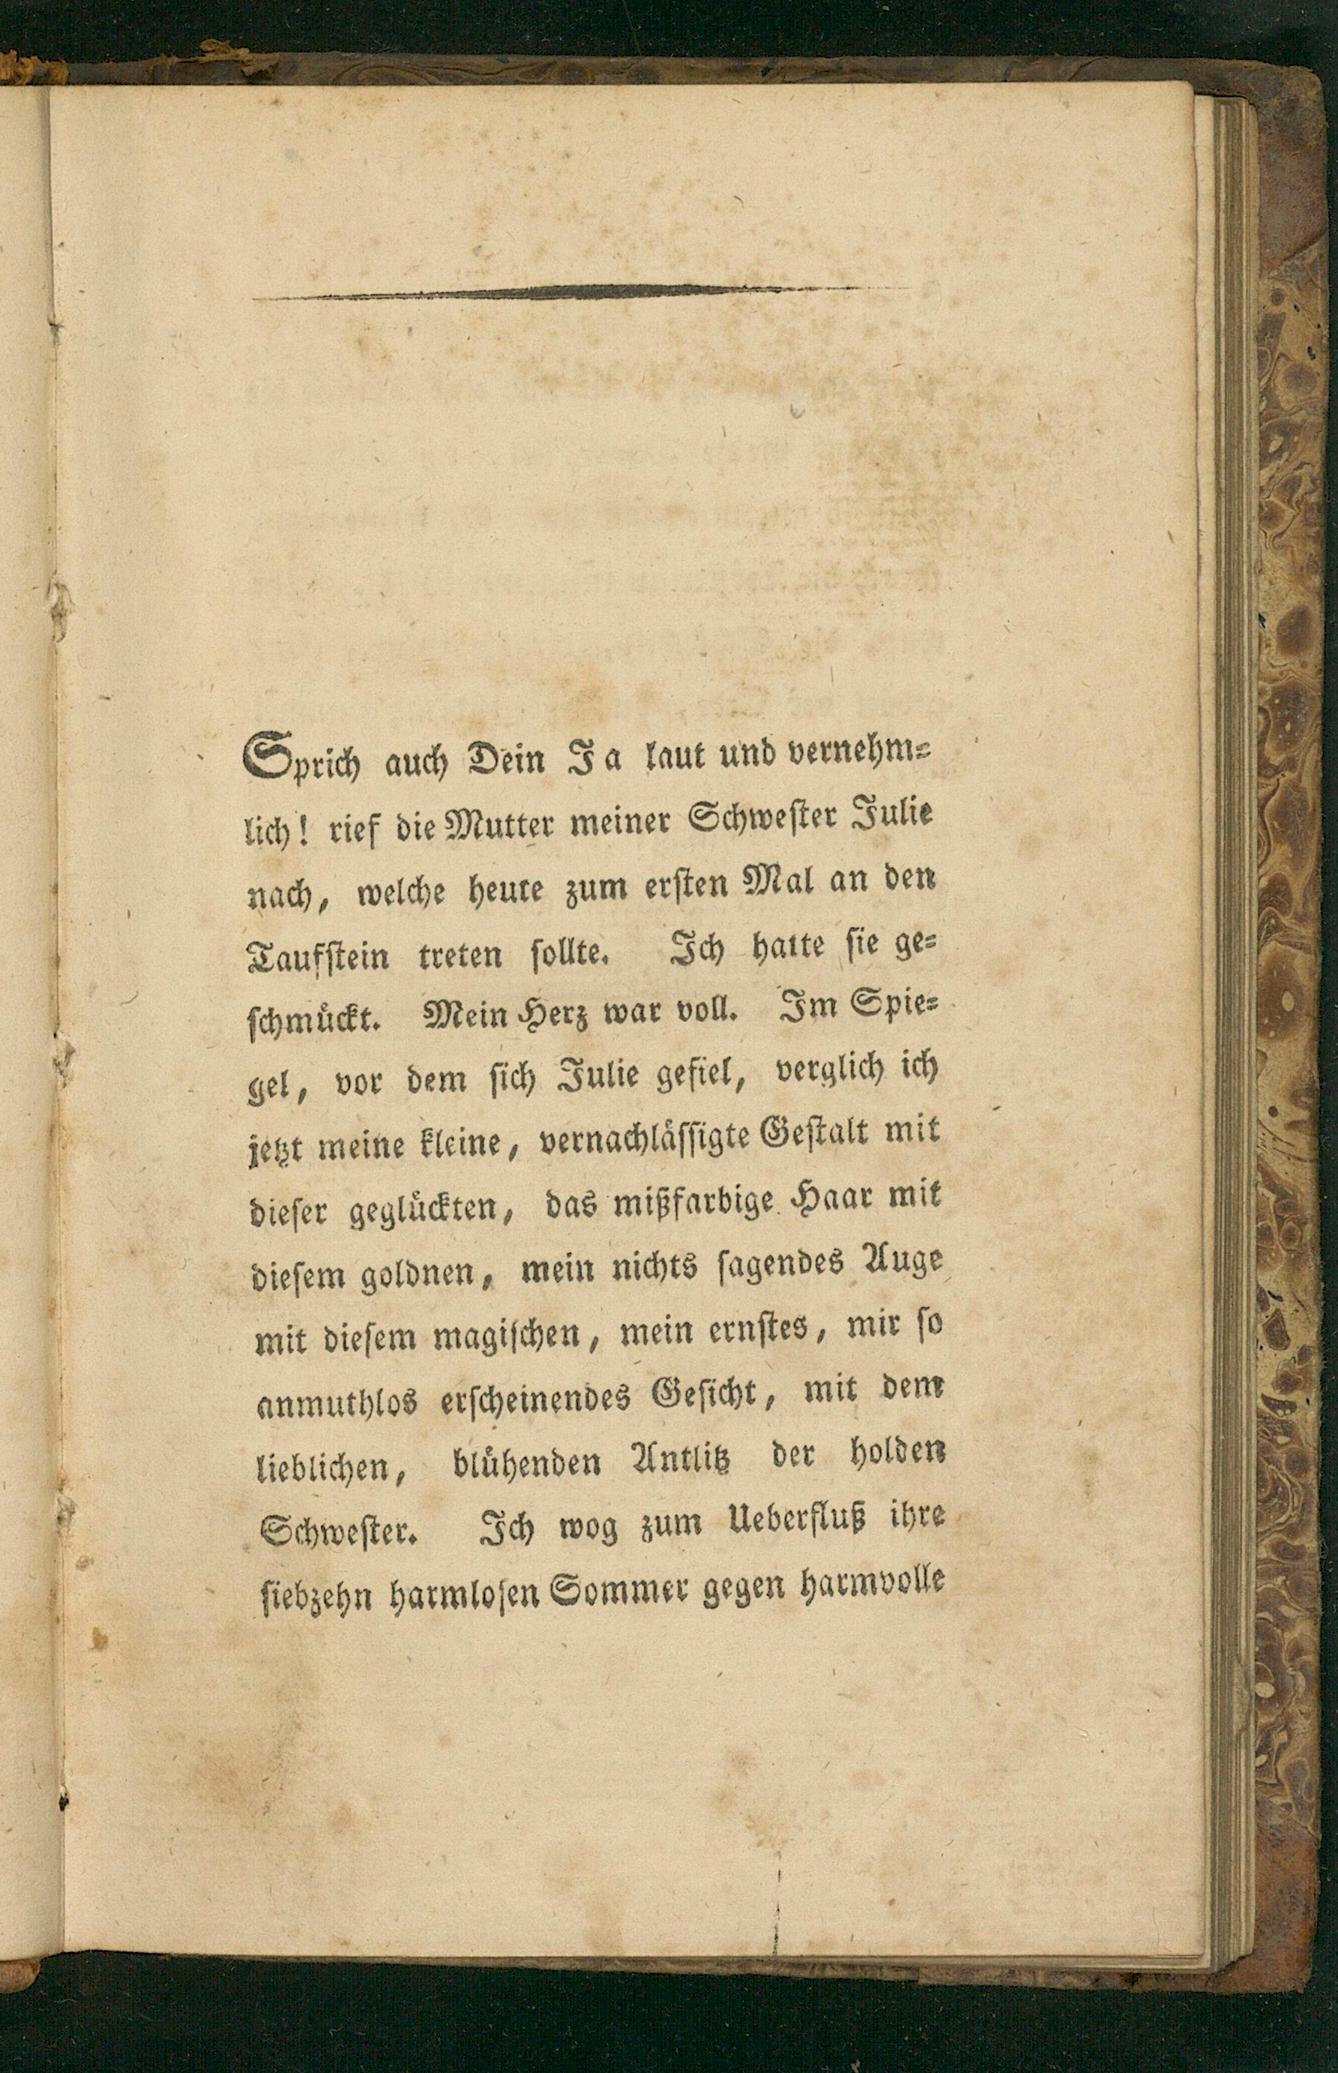 Sprich auch Dein Ja laut und vernehm⸗
lich! rief die Mutter meiner Schweſter Julie
nach, welche heute zum erſten Mal an den
Taufſtein treten ſollte. Ich hatte ſie ge⸗
ſchmückt. Mein Herz war voll. Im Spie⸗
gel, vor dem ſich Julie gefiel, verglich ich
jetzt meine kleine, vernachläſſigte Geſtalt mit
dieſer geglückten, das mißfarbige Haar mit
dieſem goldnen, mein nichts ſagendes Auge
mit dieſem magiſchen, mein ernſtes, mir ſo
anmuthlos erſcheinendes Geſicht, mit dem
lieblichen, blühenden Antlitz der holden
Schweſter. Ich wog zum Ueberfluß ihre
ſiebzehn harmloſen Sommer gegen harmvolle